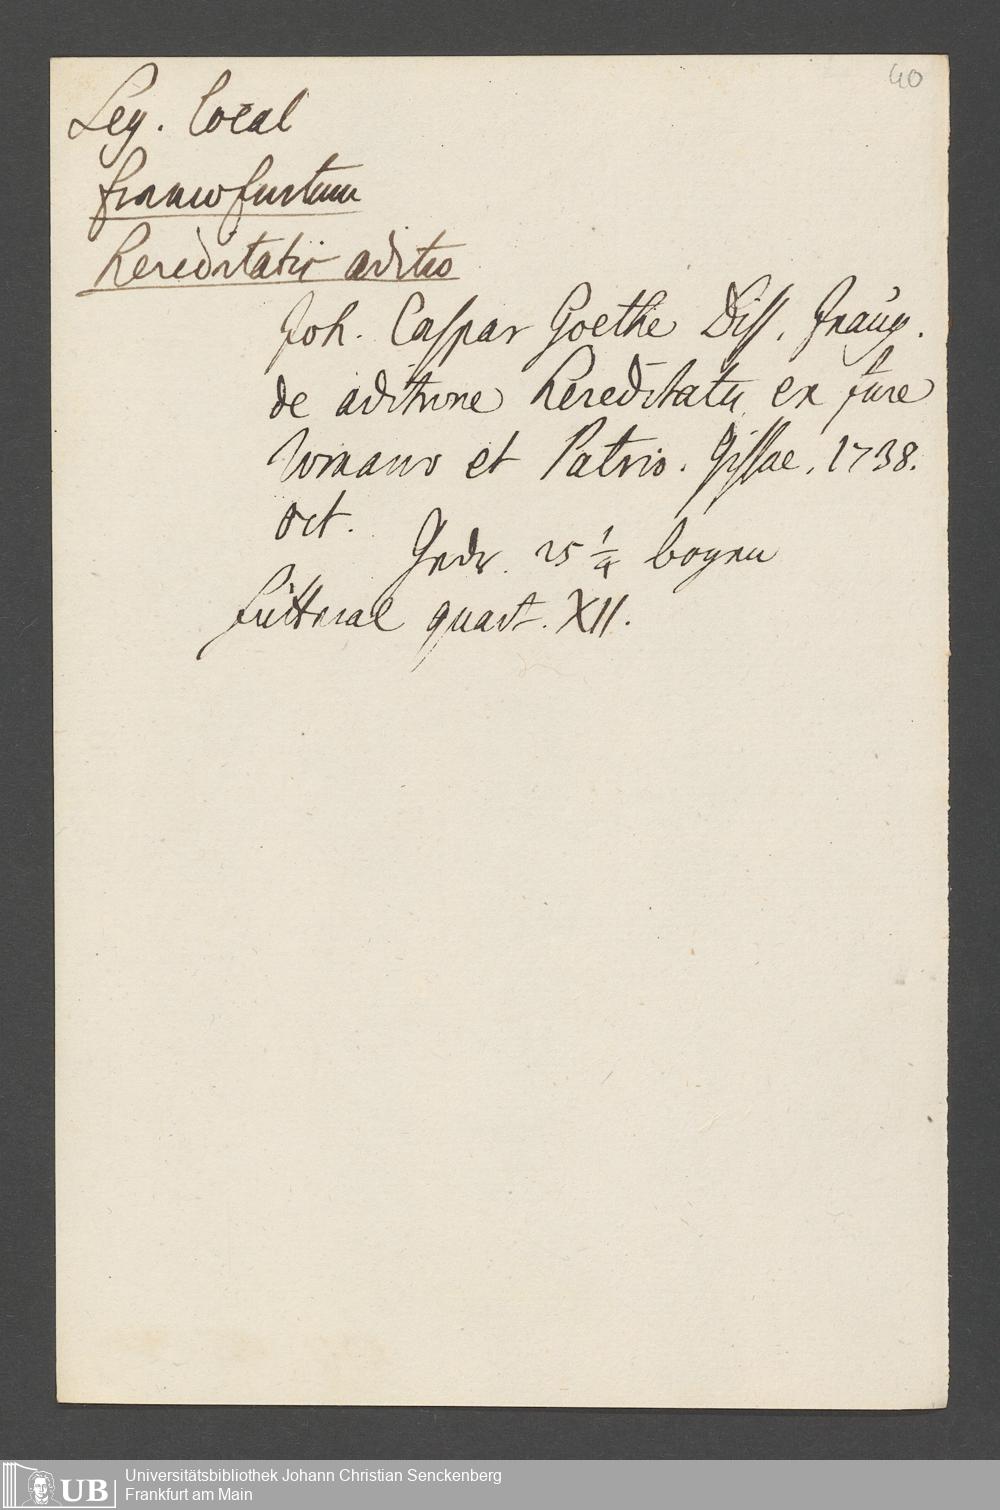 40
Leg. local
francofurtum
hereditatis aditio
Joh. Caspar Goethe Diss. Inaug.
de aditione hereditatis ex jure
Romano et Patrio. Gissae. 1738.
oct.
Gedr. 25 1/4 bogen
futteral quart. XII.
UB
Universitätsbibliothek Johann Christian Senckenberg
Frankfurt am Main